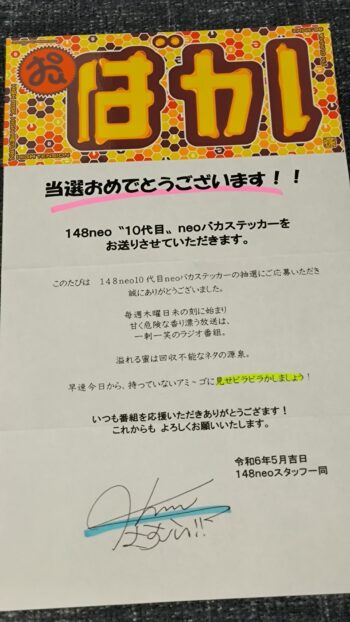 おばかし
当選おめでとうございます！！
148neo〝10代目〟neoバカステッカーを
お送りさせていただきます。
このたびは　148neo10代目neoバカステッカーの抽選にご応募いただき
誠にありがとうございました。
毎週木曜日未の刻に始まり
甘く危険な香り漂う放送は、
一刺一笑のラジオ番組。
溢れる蜜は回収不能なネタの源泉。
早速今日から、持っていないアミ～ゴに見せビラビラかしましょう！
いつも番組を応援いただきありがとうござます！
これからも よろしくお願いいたします。
令和6年5月吉日
148neoスタッフ一同